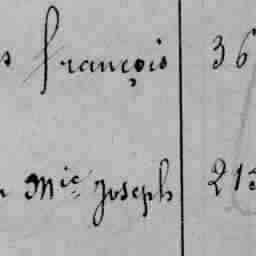 françois 36
Mie Joseph